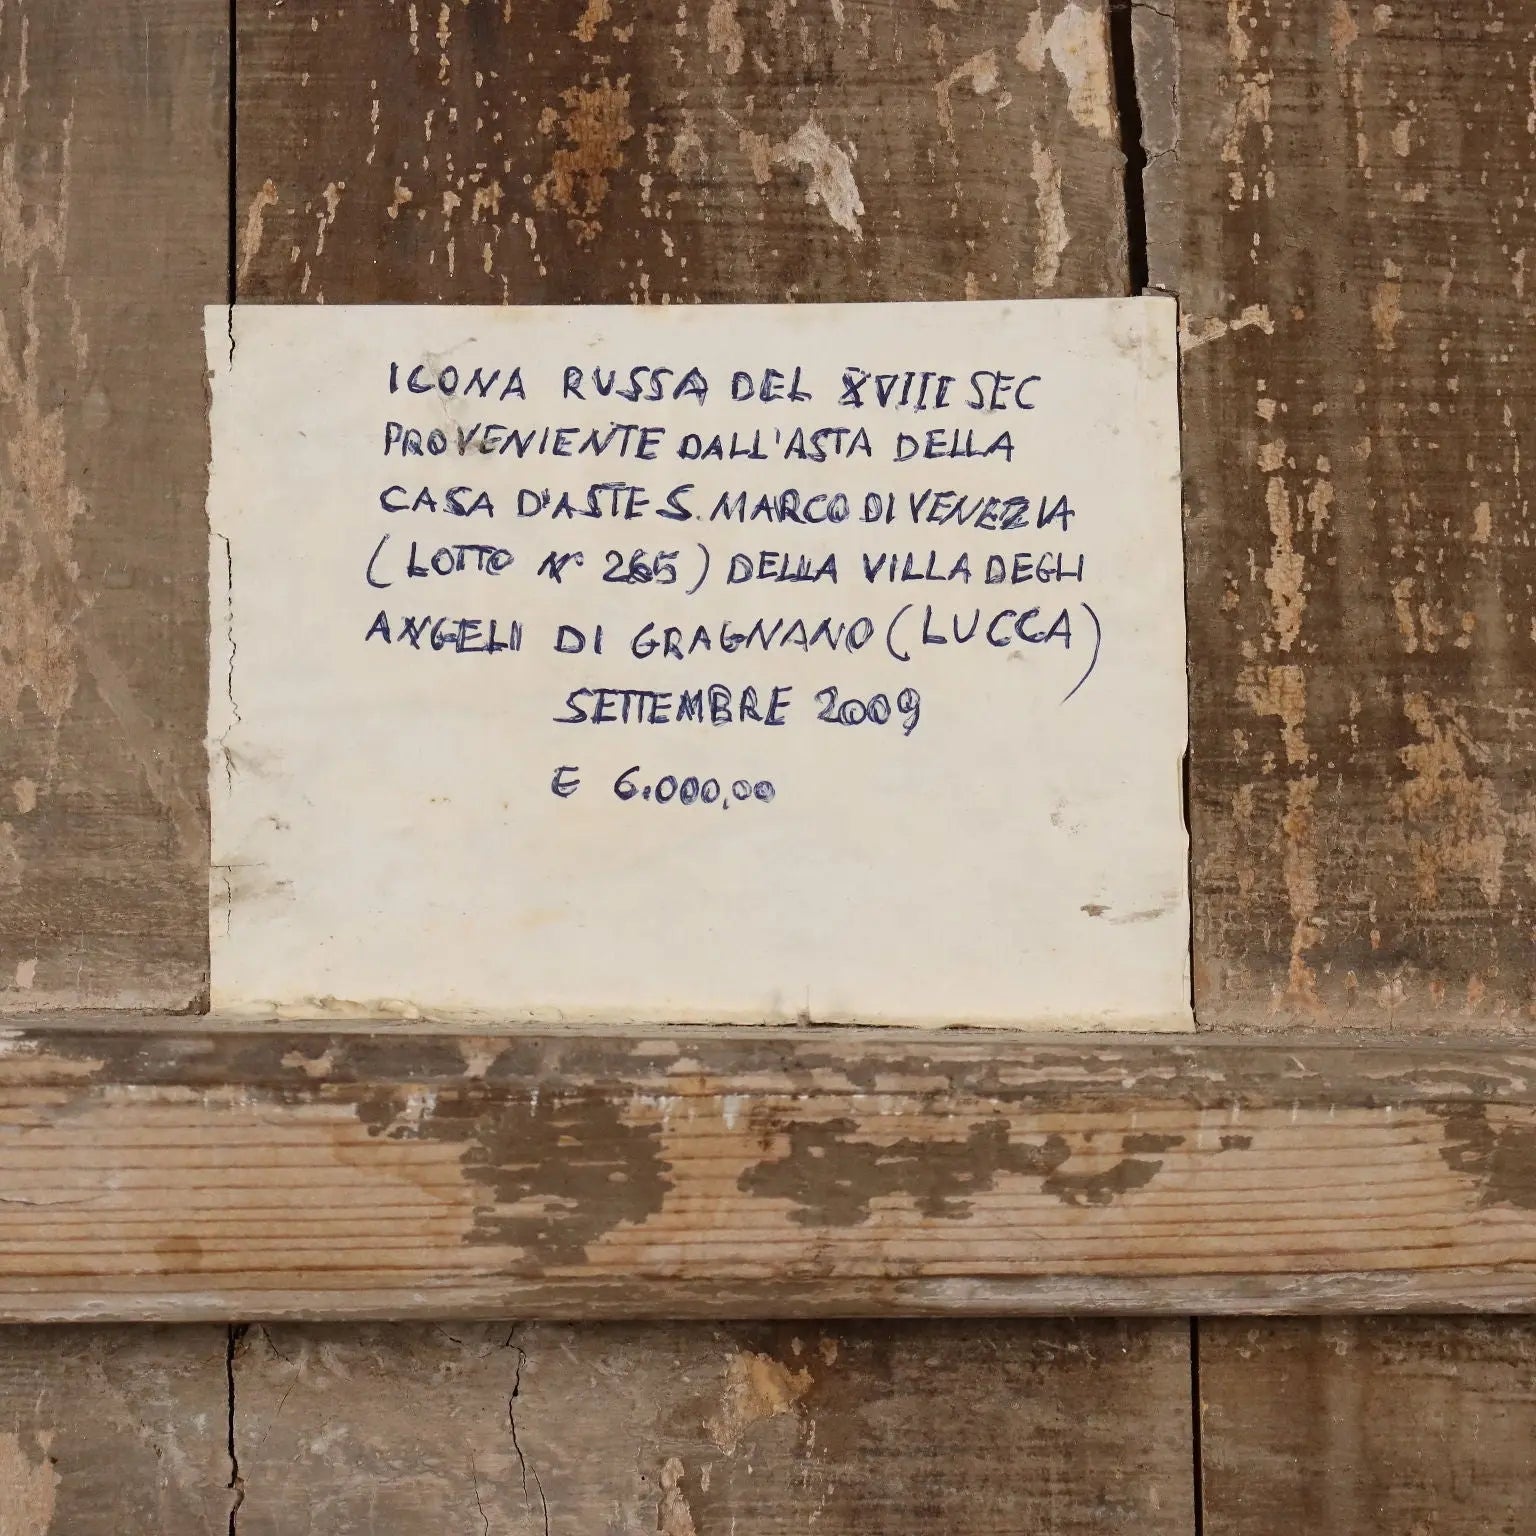 ICONA RUSSA DEL XVIII SEC
PROVENIENTE DALL'ASTA DELLA
CASA D'ASTE S. MARCO DI VENEZIA
(LOTTO N° 265) DELLA VILLA DEGLI
ANGELI DI GRAGNANO (LUCCA)
SETTEMBRE 2009
E 6.000,00